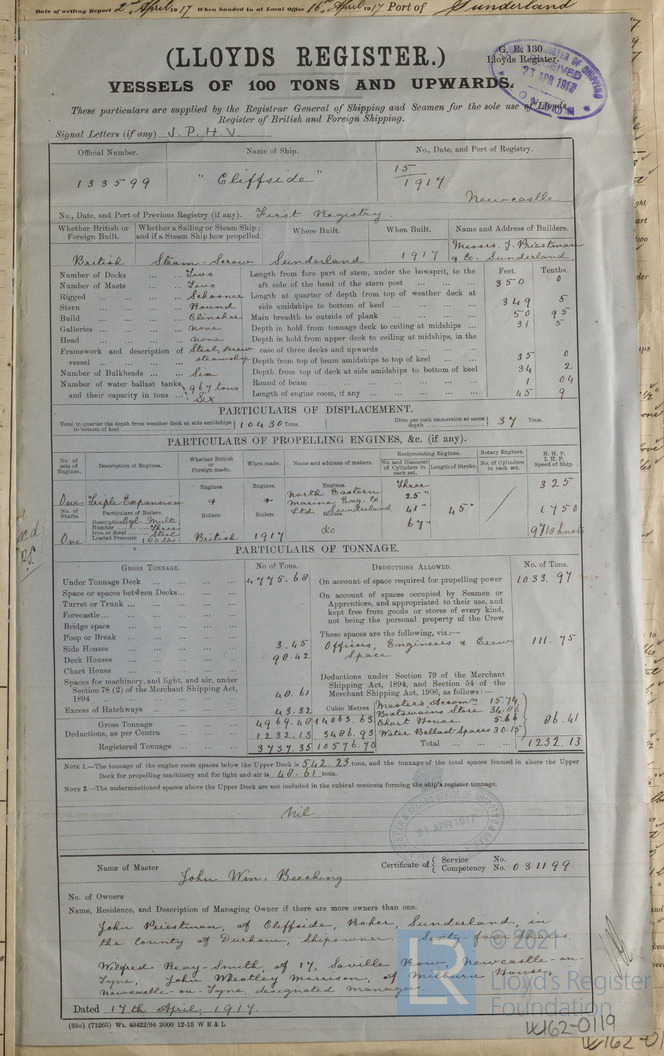 Date of writing Report 2nd April 1917 When handed in at Local Office 16th April 1917 Port of Sunderland
(LLOYDS REGISTER.)
G. R. 130
Lloyds Register.
VESSELS OF 100 TONS AND UPWARDS.
RECEIVED
21 APR 1917
These particulars are supplied by the Registrar General of Shipping and Seamen for the sole use of Lloyds
Register of British and Foreign Shipping.
Signal Letters (if any) J. P. H. V
Official Number. Name of Ship. No., Date, and Port of Registry.
133599 "Cliffside" 15/1917 Newcastle
No., Date, and Port of Previous Registry (if any). First Registry
Whether British or Foreign Built. Whether a Sailing or Steam Ship; and if a Steam Ship how propelled. Where Built. When Built. Name and Address of Builders.
British Steam-Screw Sunderland 1917 Messrs. J. Priestman & Co. Sunderland
Number of Decks ... Two
Number of Masts ... Two
Rigged ... Schooner
Stern ... Round
Build ... Clincher
Galleries ... None
Head ... None
Framework and description of vessel ... Steel, screw steamship
Number of Bulkheads ... Six
Number of water ballast tanks, and their capacity in tons ... 967 tons Six
Feet. Tenths.
Length from fore part of stem, under the bowsprit, to the aft side of the head of the stern post ... 350 0
Length at quarter of depth from top of weather deck at side amidships to bottom of keel ... 349 5
Main breadth to outside of plank ... 50 95
Depth in hold from tonnage deck to ceiling at midships ... 31 5
Depth in hold from upper deck to ceiling at midships, in the case of three decks and upwards
Depth from top of beam amidships to top of keel ... 35 0
Depth from top of deck at side amidships to bottom of keel 34 2
Round of beam ... 1 04
Length of engine room, if any ... 45 9
PARTICULARS OF DISPLACEMENT.
Total to quarter the depth from weather deck at side amidships to bottom of keel 10430 Tons. Ditto per inch immersion at same depth 37 Tons.
PARTICULARS OF PROPELLING ENGINES, &c. (if any).
No. of sets of Engines. Description of Engines. Whether British or Foreign made. When made. Name and address of makers. Reciprocating Engines. Rotary Engines. N. H. P. I. H. P. Speed of Ship.
No. and Diameter of Cylinders in each set. Length of Stroke. No. of Cylinders in each set.
Engines. Engines. Engines.
One Triple Expansion North Eastern Marine Eng. Co. Ltd Sunderland Three 25" 41" 67" 45" 325
No. of Shafts. Particulars of Boilers. Boilers. Boilers. Boilers. 1750
Description Cyl. Multi
Number Three
Iron or Steel Steel
Loaded Pressure 180 lbs.
One British 1917 do
PARTICULARS OF TONNAGE.
GROSS TONNAGE. No. of Tons.
Under Tonnage Deck ... 4775.68
Space or spaces between Decks ...
Turret or Trunk ...
Forecastle ...
Bridge space
Poop or Break
Side Houses 3.45
Deck Houses 98.42
Chart House
Spaces for machinery, and light, and air, under Section 78 (2) of the Merchant Shipping Act, 1894 48.61
Excess of Hatchways 43.32 Cubic Metres
Gross Tonnage 4969.48 14063.63
Deductions, as per Contra 1232.13 3486.93
Registered Tonnage 3737.35 10576.70
DEDUCTIONS ALLOWED. No. of Tons.
On account of space required for propelling power 1033.97
On account of spaces occupied by Seamen or Apprentices, and appropriated to their use, and kept free from goods or stores of every kind, not being the personal property of the Crew
These spaces are the following, viz.:—
Officers, Engineers & Crew Space 111.75
Deductions under Section 79 of the Merchant Shipping Act, 1894, and Section 54 of the Merchant Shipping Act, 1906, as follows:—
Masters Accomn 15.74
Boatswains Store 34.86
Chart House 5.66
Water Ballast Spaces 30.15
86.41
Total ... 1232.13
NOTE 1.—The tonnage of the engine room spaces below the Upper Deck is 542.23 tons, and the tonnage of the total spaces framed in above the Upper Deck for propelling machinery and for light and air is 48.61 tons.
NOTE 2.—The undermentioned spaces above the Upper Deck are not included in the cubical contents forming the ship's register tonnage.
Nil
21 APR 1917
Name of Master John Wm. Beeching Certificate of { Service No. Competency No. 031199
No. of Owners
Name, Residence, and Description of Managing Owner if there are more owners than one.
John Priestman, of Cliffside, Roker, Sunderland, in
the County of Durham, Shipowner. Sixty four Shares.
Wilfred Reay-Smith of 17, Saville Row, Newcastle-on-
Tyne, John Wheatley Morrison, of Milburn House,
Newcastle-on-Tyne designated Managers
Dated 17th April, 1917.
(83o) (71265) Wt. 40422/94 2000 12-15 W B & L
LR
© 2021
Lloyd's Register
Foundation
W162-0119